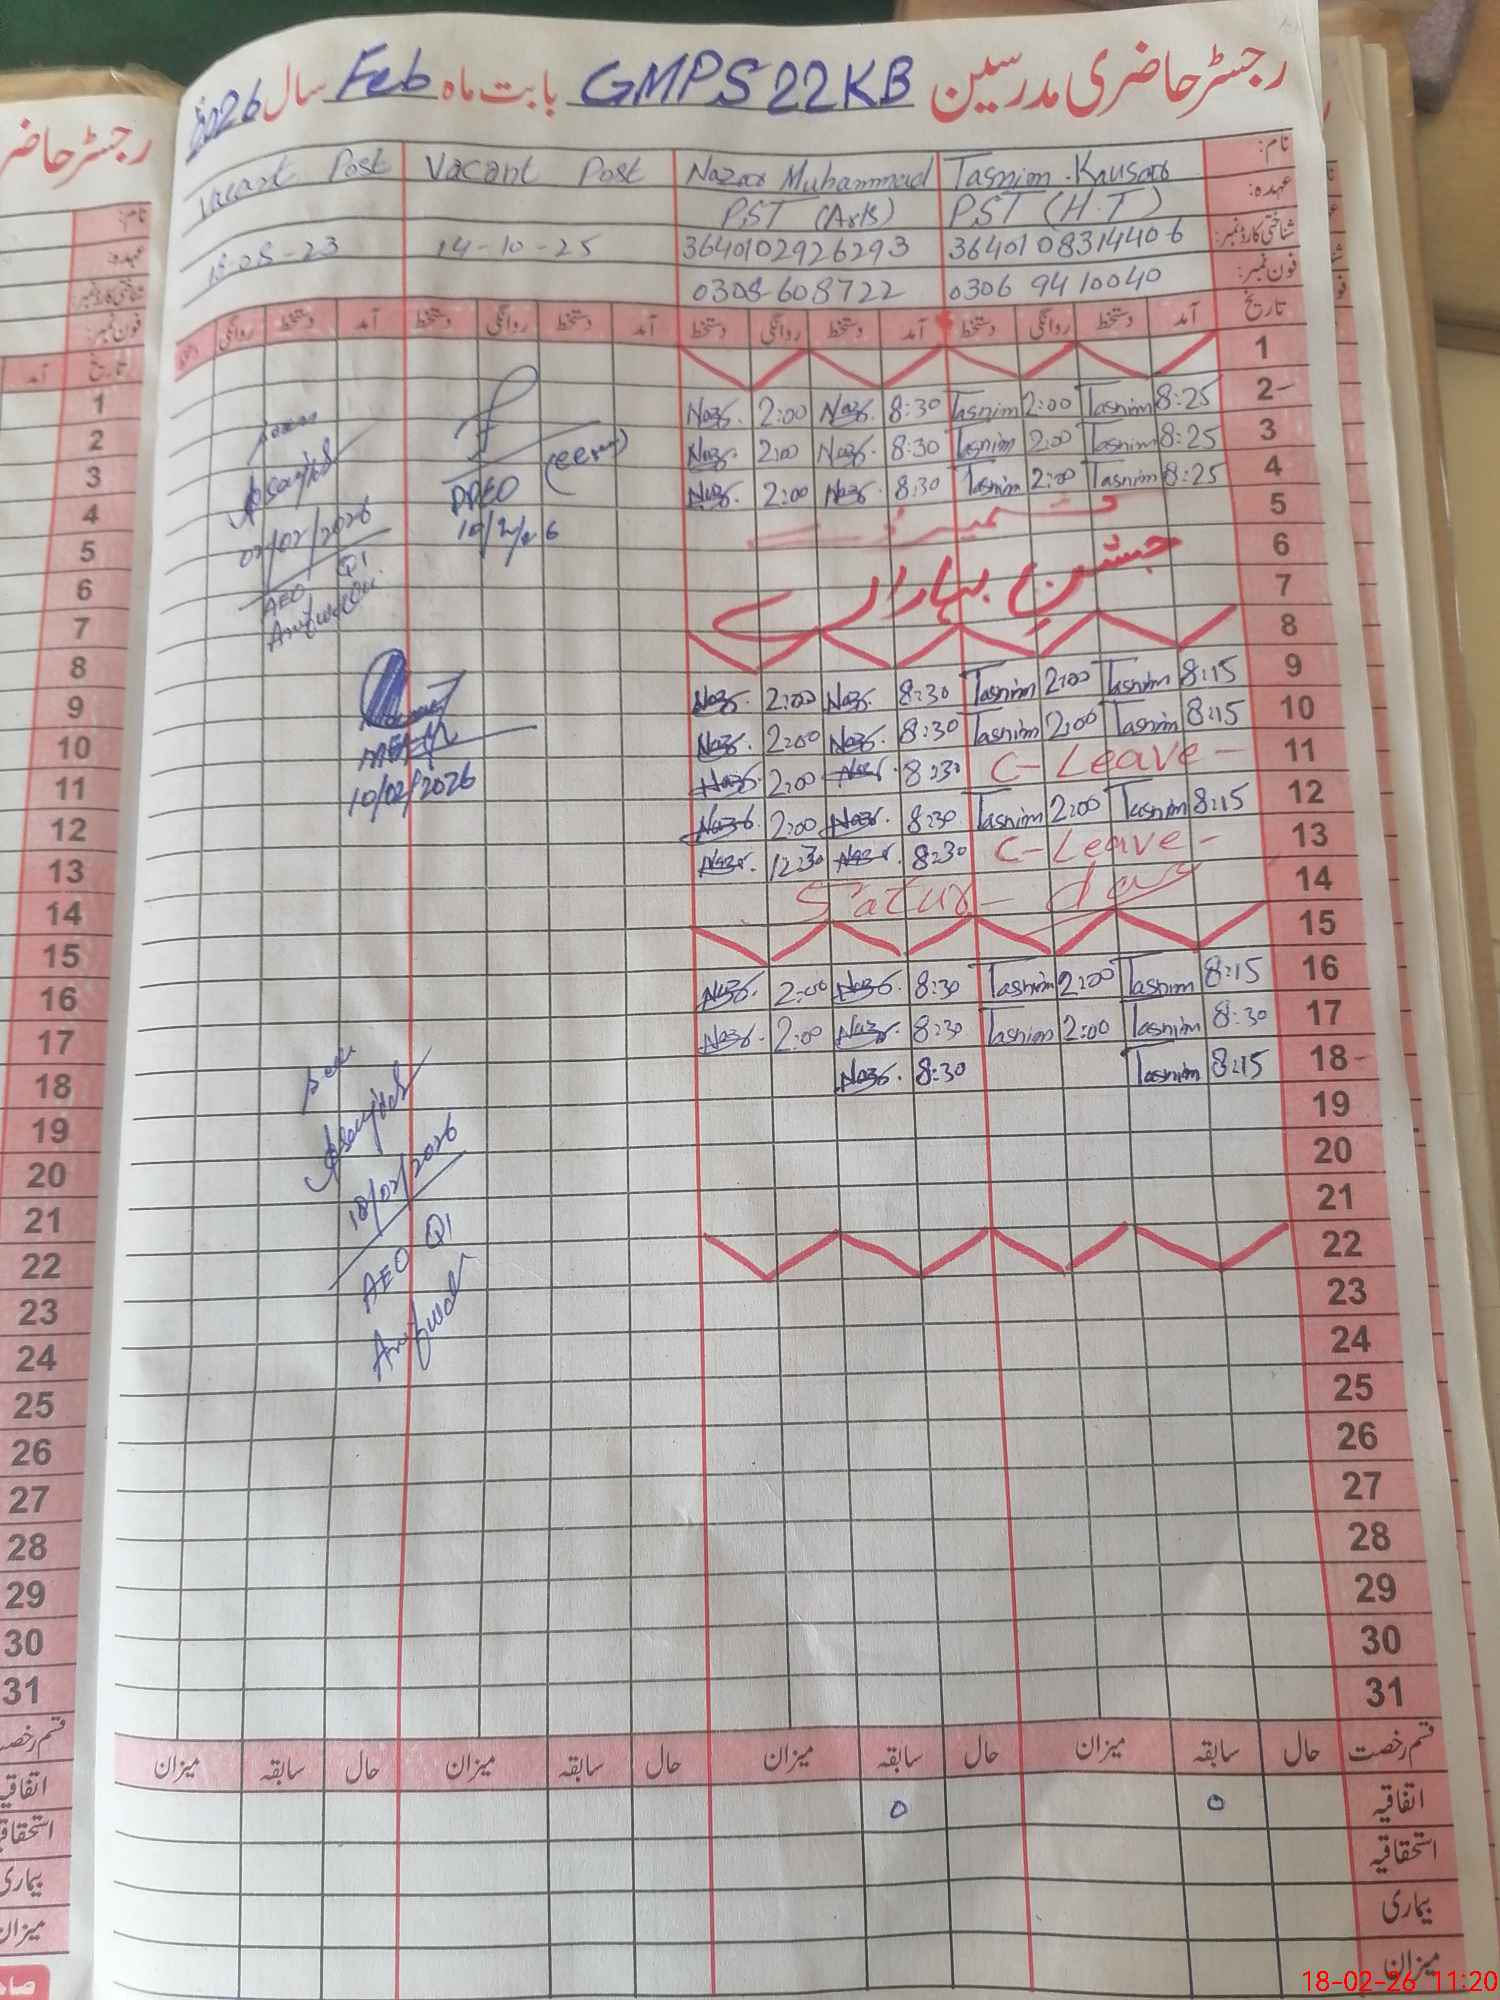 رجسٹر حاضری مدرسین GMPS 22KB بابت ماہ Feb سال 2026
نام: Tasnim Kausar Nazar Muhammad Vacant Post Vacant Post
عہدہ: PST (H.T) PST (Arts)
شناختی کارڈ نمبر: 3640108314406 3640102926293 14-10-25
فون نمبر: 0306 9410040 0308-608722
تاریخ آمد دستخط روانگی دستخط آمد دستخط روانگی دستخط آمد دستخط روانگی دستخط آمد دستخط روانگی
1
2 8:25 Tasnim 2:00 Tasnim 8:30 Naz 2:00 Naz
3 8:25 Tasnim 2:00 Tasnim 8:30 Naz 2:00 Naz
4 8:25 Tasnim 2:00 Tasnim 8:30 Naz 2:00 Naz
5
6 جشن بہاراں
7
8
9 8:15 Tasnim 2:00 Tasnim 8:30 Naz 2:00 Naz
10 8:15 Tasnim 2:00 Tasnim 8:30 Naz 2:00 Naz
11 C-Leave- 8:30 Naz 2:00 Naz
12 8:15 Tasnim 2:00 Tasnim 8:30 Naz 2:00 Naz
13 C-Leave- 8:30 Naz 12:30 Naz
14 Satur-day
15
16 8:15 Tasnim 2:00 Tasnim 8:30 Naz 2:00 Naz
17 8:30 Tasnim 2:00 Tasnim 8:30 Naz 2:00 Naz
18 8:15 Tasnim 8:30 Naz
19
20
21
22
23
24
25
26
27
28
29
30
31
قسم رخصت حال سابقہ میزان حال سابقہ میزان حال سابقہ میزان حال سابقہ میزان
اتفاقیہ 0 0
استحقاقیہ
بیماری
میزان
DDEO
10/2/26
02/02/2026
AEO Q1
10/02/2026
18/02/2026
AEO Q1
رجسٹر حاضر
نام:
عہدہ:
شناختی کارڈ نمبر:
فون نمبر:
تاریخ آمد
1
2
3
4
5
6
7
8
9
10
11
12
13
14
15
16
17
18
19
20
21
22
23
24
25
26
27
28
29
30
31
قسم رخصت
اتفاقیہ
استحقاقیہ
بیماری
میزان
18-02-26 11:20